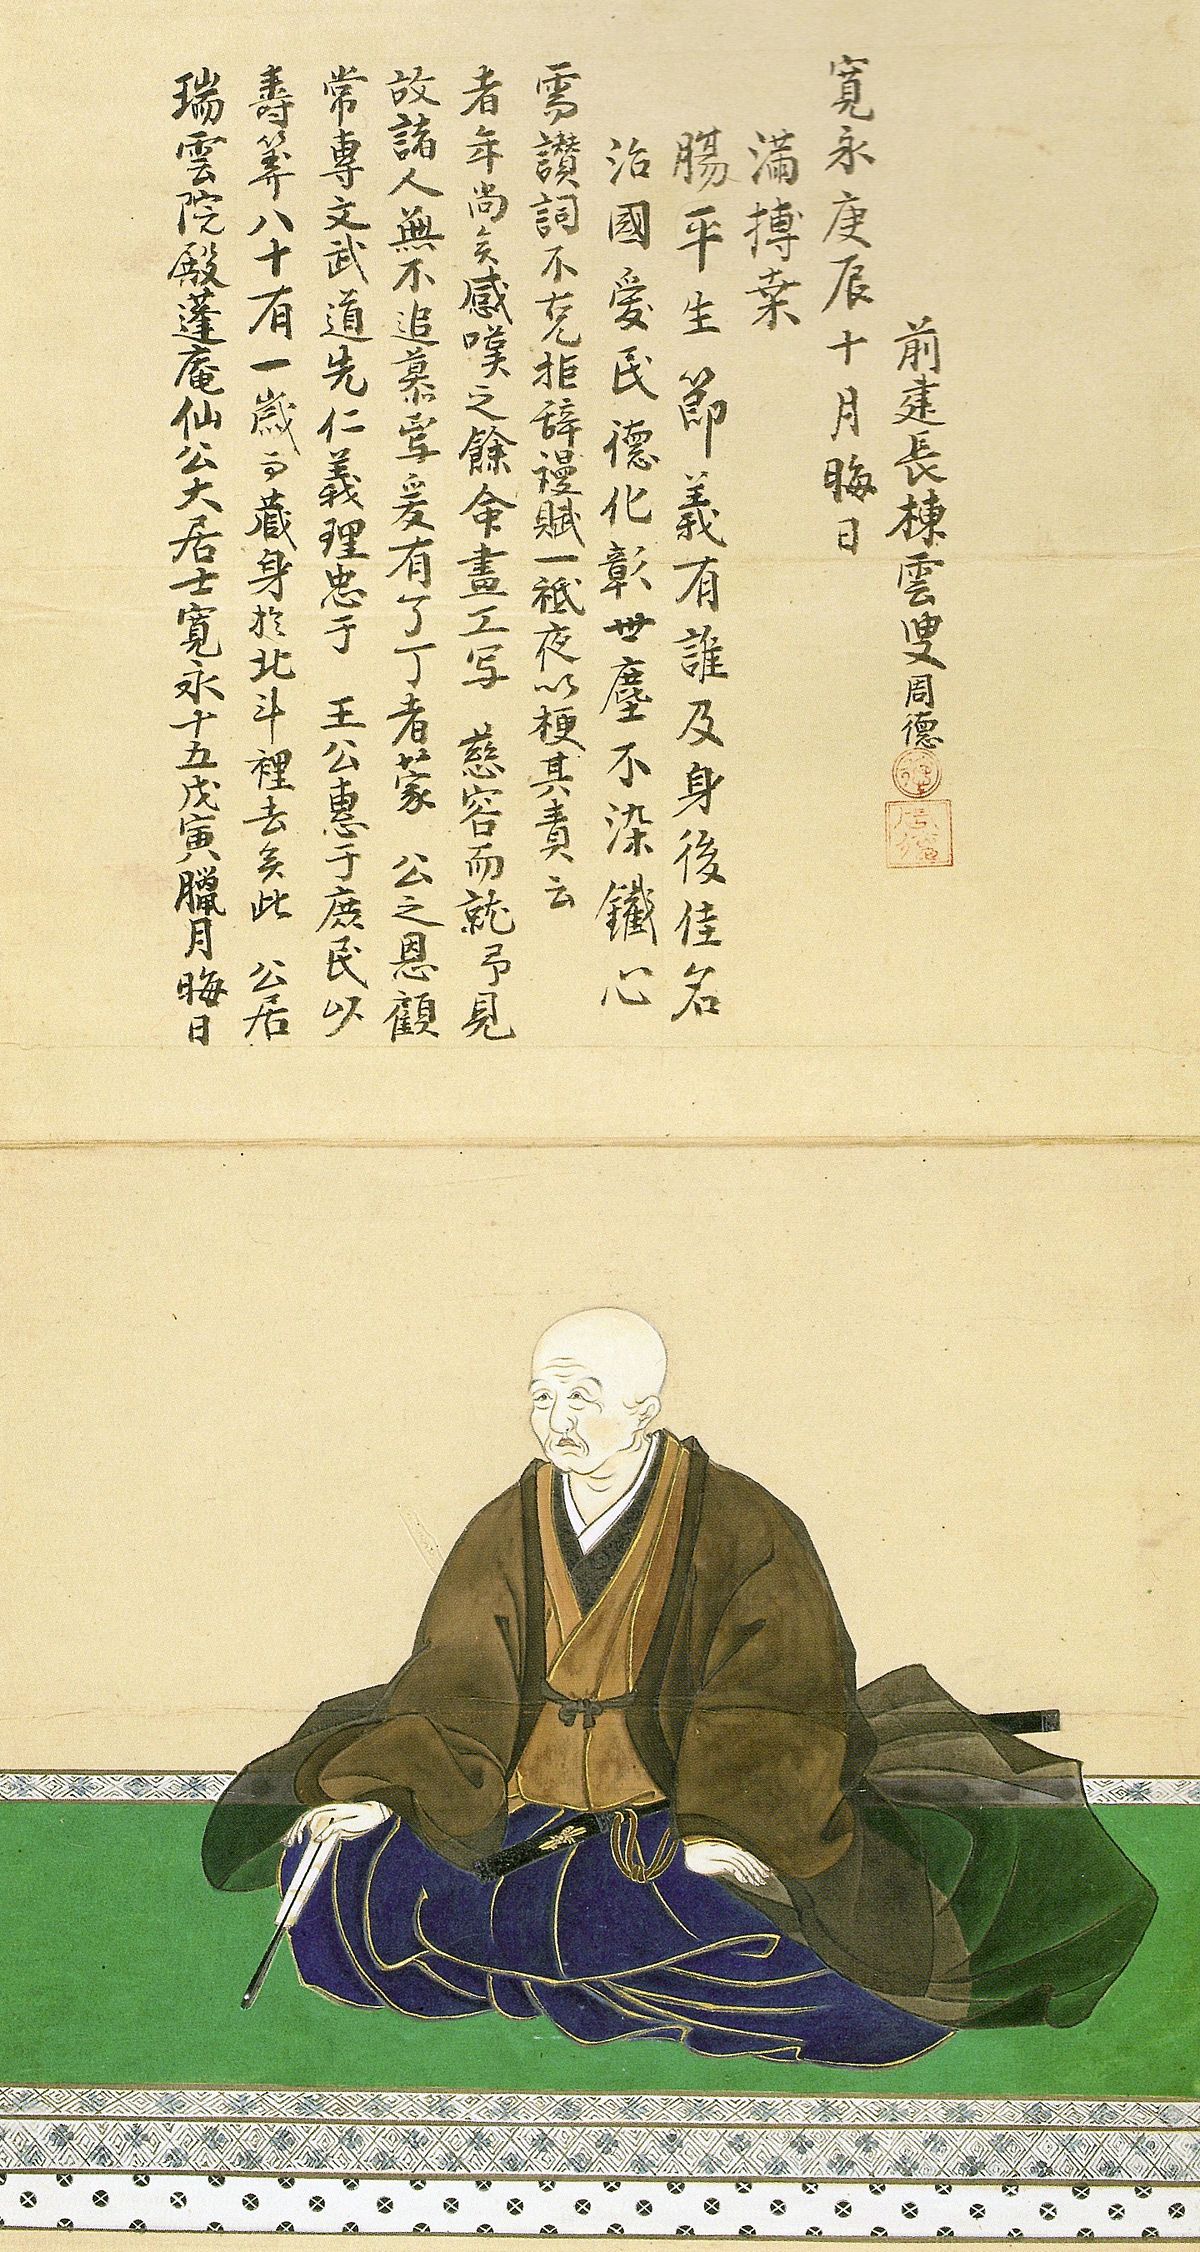 瑞雲院殿蓬庵仙公大居士寛永十五戊寅臘月晦日
壽筭八十有一歳而蔵身於北斗裡去矣此 公居
常専文武道先仁義理忠于 王公惠于庶民以
故諸人無不追慕焉爰有了丁者蒙 公之恩顧
者年尚矣感嘆之餘命畫工写 慈容而就予見
需讃詞不克拒辞謾賦一祇夜以梗其責云
治國愛民徳化彰世塵不染鐵心
腸平生節義有誰及身後佳名
満搏桒
寛永庚辰十月晦日
前建長棟雲叟周徳